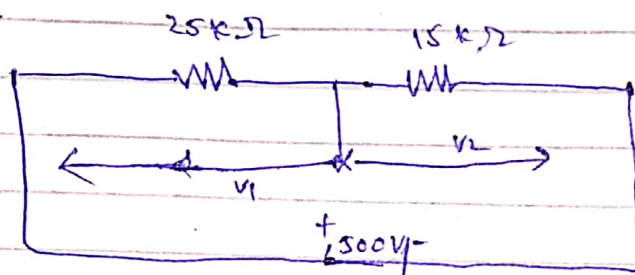 25KΩ 15KΩ
V1 V2
+
500V -